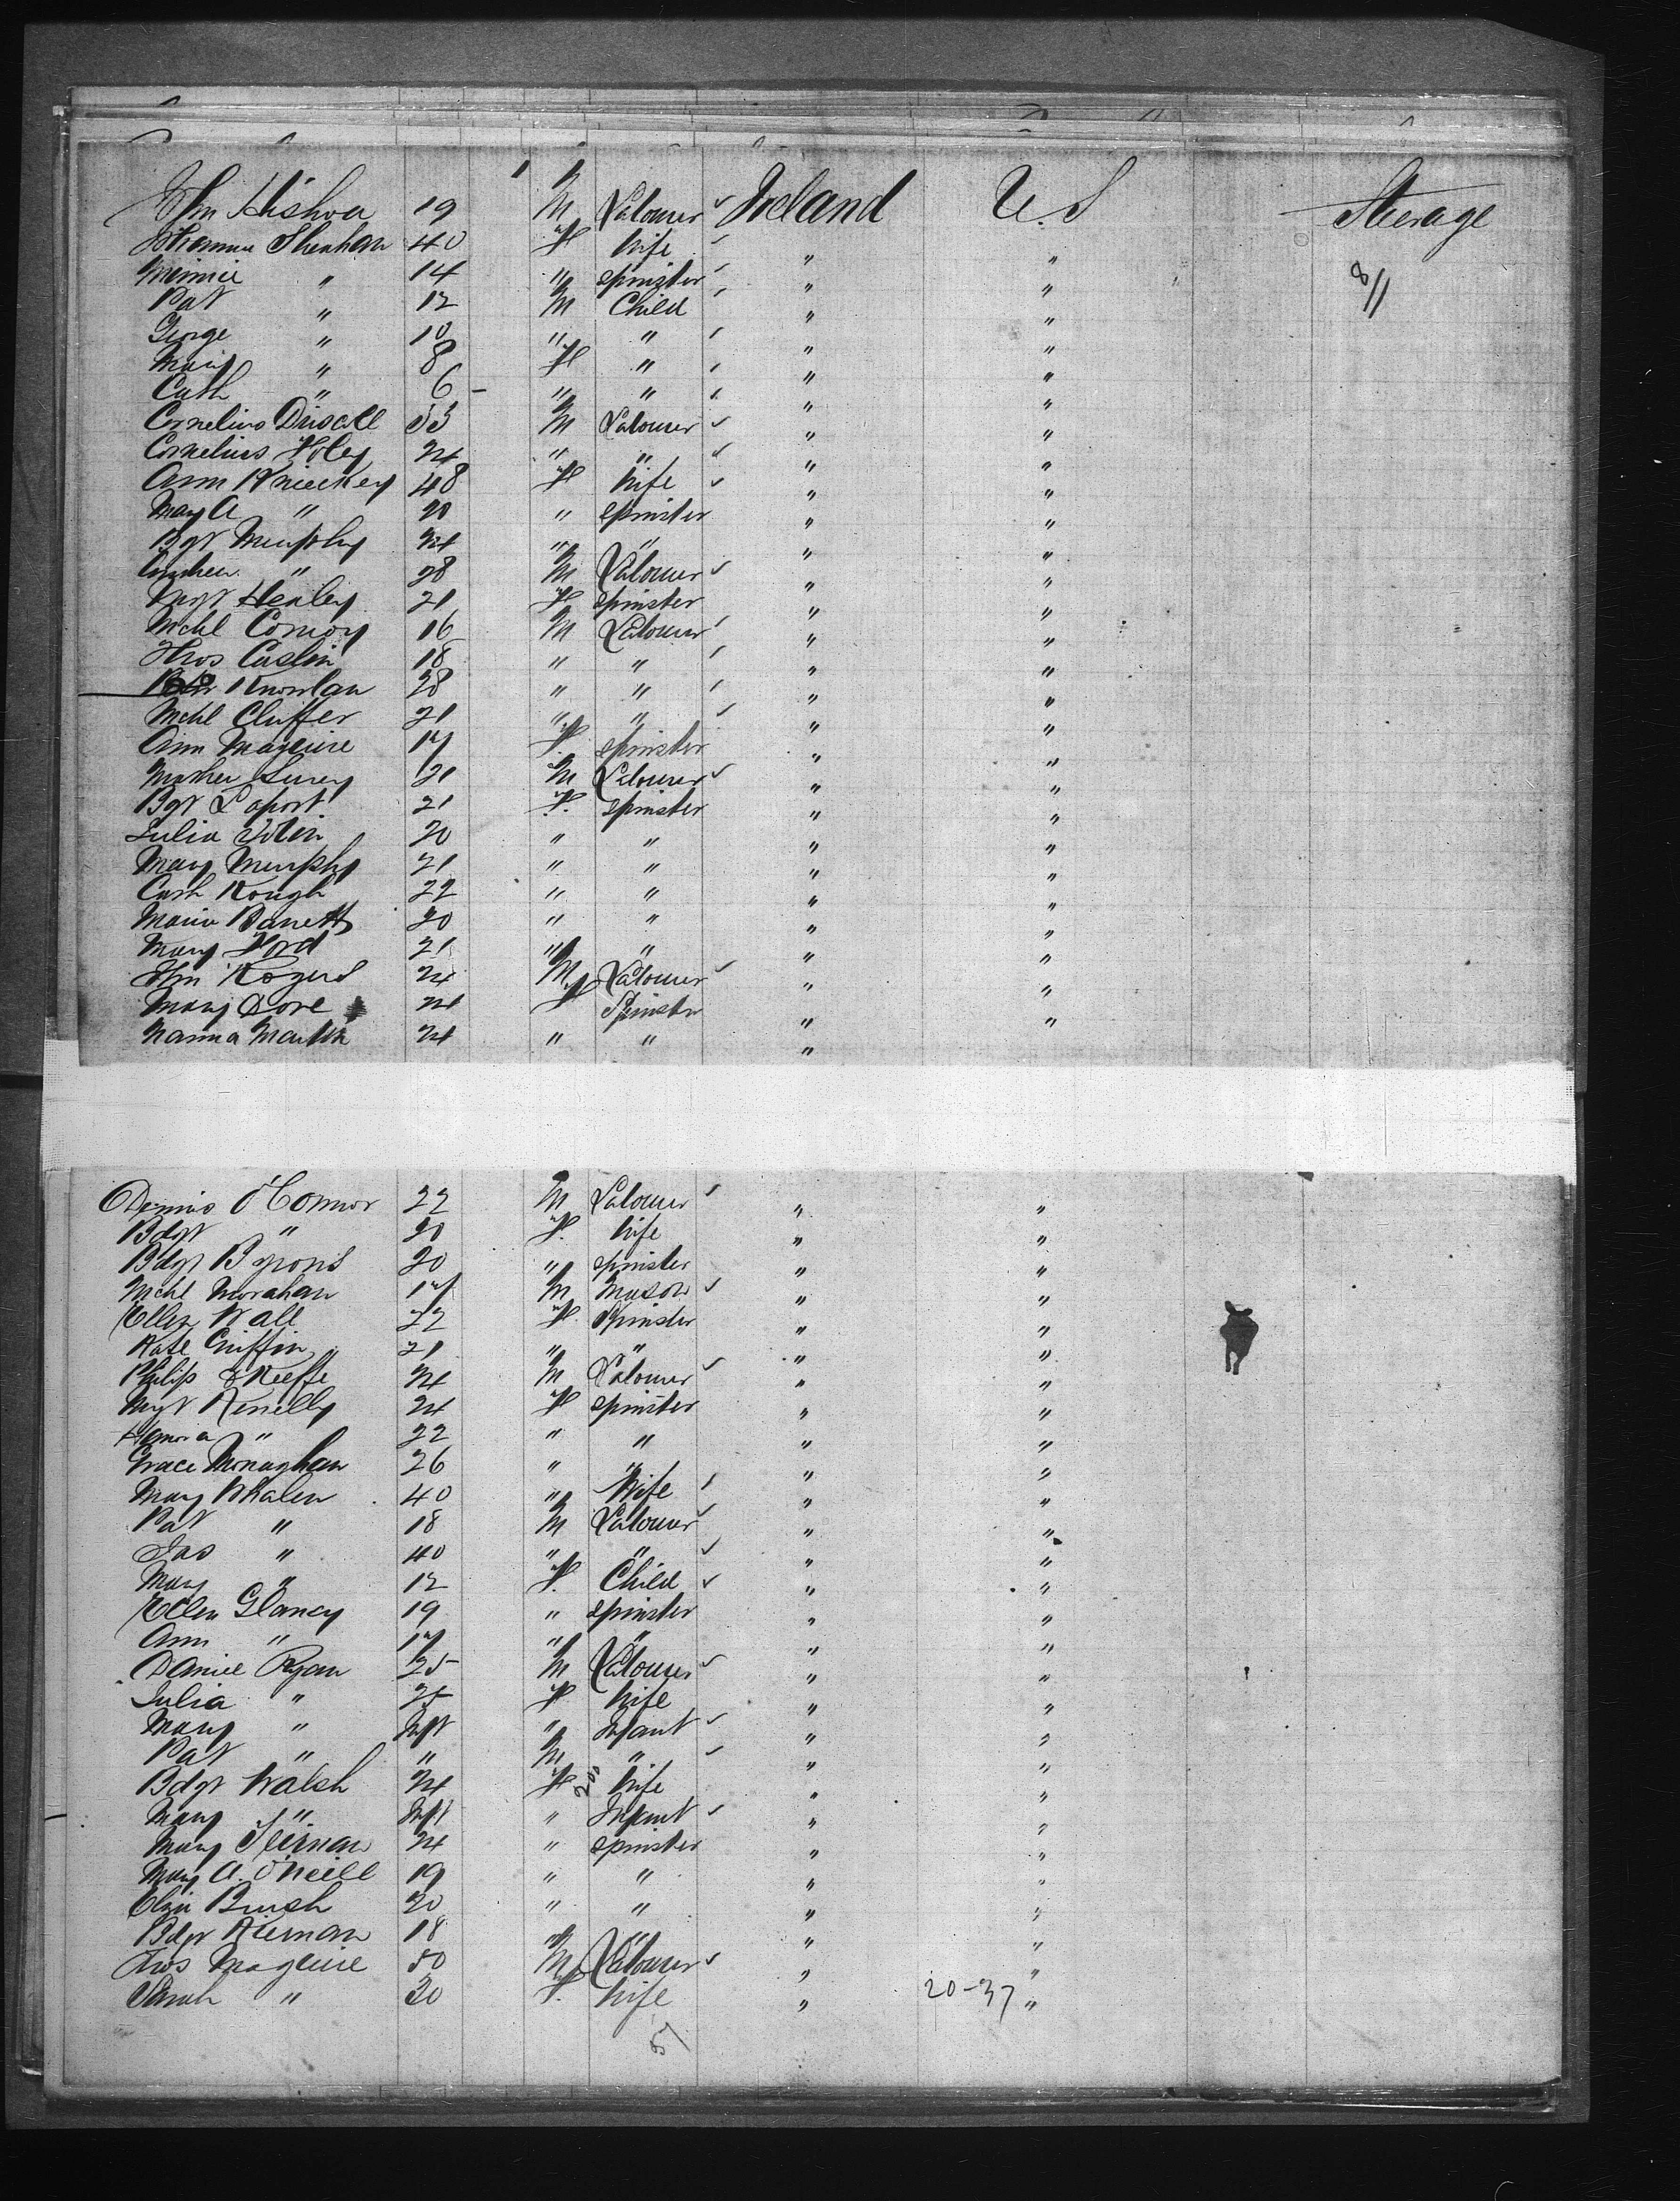 Jhn 19 M Labourer Ireland U.S Steerage
Johanna Shenhan 40 F Wife " "
Minnie " 14 " Spinster " " 8/11
Pat " 12 M Child " "
George " 10 " " " "
Mary " 8 F " " "
Cath " 6 - " " " "
Cornelius Driscoll 33 M Labourer " "
Cornelius Foley 24 " " " "
Ann 48 F Wife " "
Mary A " 20 " Spinster " "
Bgt Murphy 24 " " " "
Andrew " 28 M Labourer " "
Mgt Henley 21 F Spinster " "
Mchl Conroy 16 M Labourer " "
Thos Caslin 18 " " " "
Knowlan 28 " " " "
Mchl Cluffer 21 " " " "
Ann Maguire 17 F. Spinster " "
21 M Labourer " "
Bgt Laport 21 F. Spinster " "
Julia Tobin 20 " " " "
Mary Murphy 21 " " " "
Cath Keough 22 " " " "
Maria Barrett 20 " " " "
Mary Ford 21 " " " "
Jhn Rogers 24 M Labourer " "
Mary Dore 24 F Spinster " "
Nanna Martin 24 " " "
Dennis O'Connor 22 M Labourer " "
Bdgt " 20 F. Wife " "
Bdgt Byrons 20 " Spinster " "
Mchl Morahan 17 M Mason " "
Ellen Wall 22 F Spinster " "
Kate Griffin 21 " " " "
Philip O'Keeffe 24 M Labourer " "
Mgt Kenelly 24 F Spinster " "
Honora " 22 " " " "
Grace Monaghan 26 " " " "
Mary Whalen 40 " Wife " "
Pat " 18 M Labourer " "
Jas " 40 " " " "
Mary " 12 F. Child " "
Ellen Glancy 19 " Spinster " "
Ann " 17 " " " "
Daniel Ryan 25 M Labourer " "
Julia " 25 F Wife " "
Mary " Inft " Infant " "
Pat " " M " " "
Bdgt Walsh 24 F Wife " "
Mary " Inft " Infant " "
Mary 24 " Spinster " "
Mary A. O'Neill 19 " " " "
Eliza Brush 20 " " " "
Bdgt Kiernan 18 " " "
Thos Maguire 50 M Labourer " "
Sarah " 30 F. Wife " 20-37 "
57